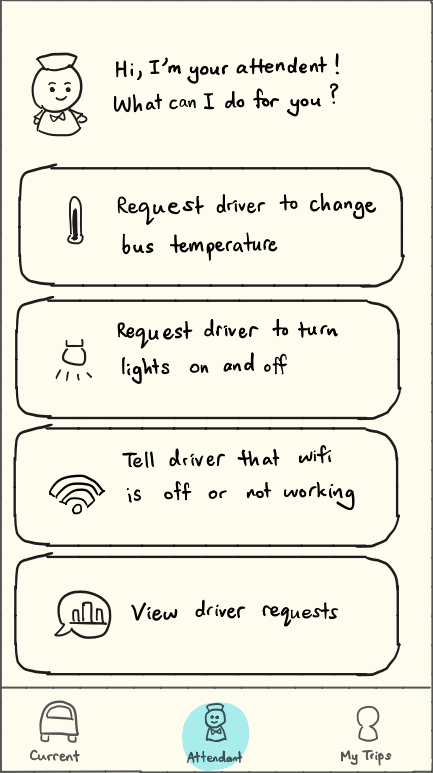 Hi, I'm your attendent!
What can I do for you?
Request driver to change
bus temperature
Request driver to turn
lights on and off
Tell driver that wifi
is off or not working
View driver requests
Current
Attendant
My Trips